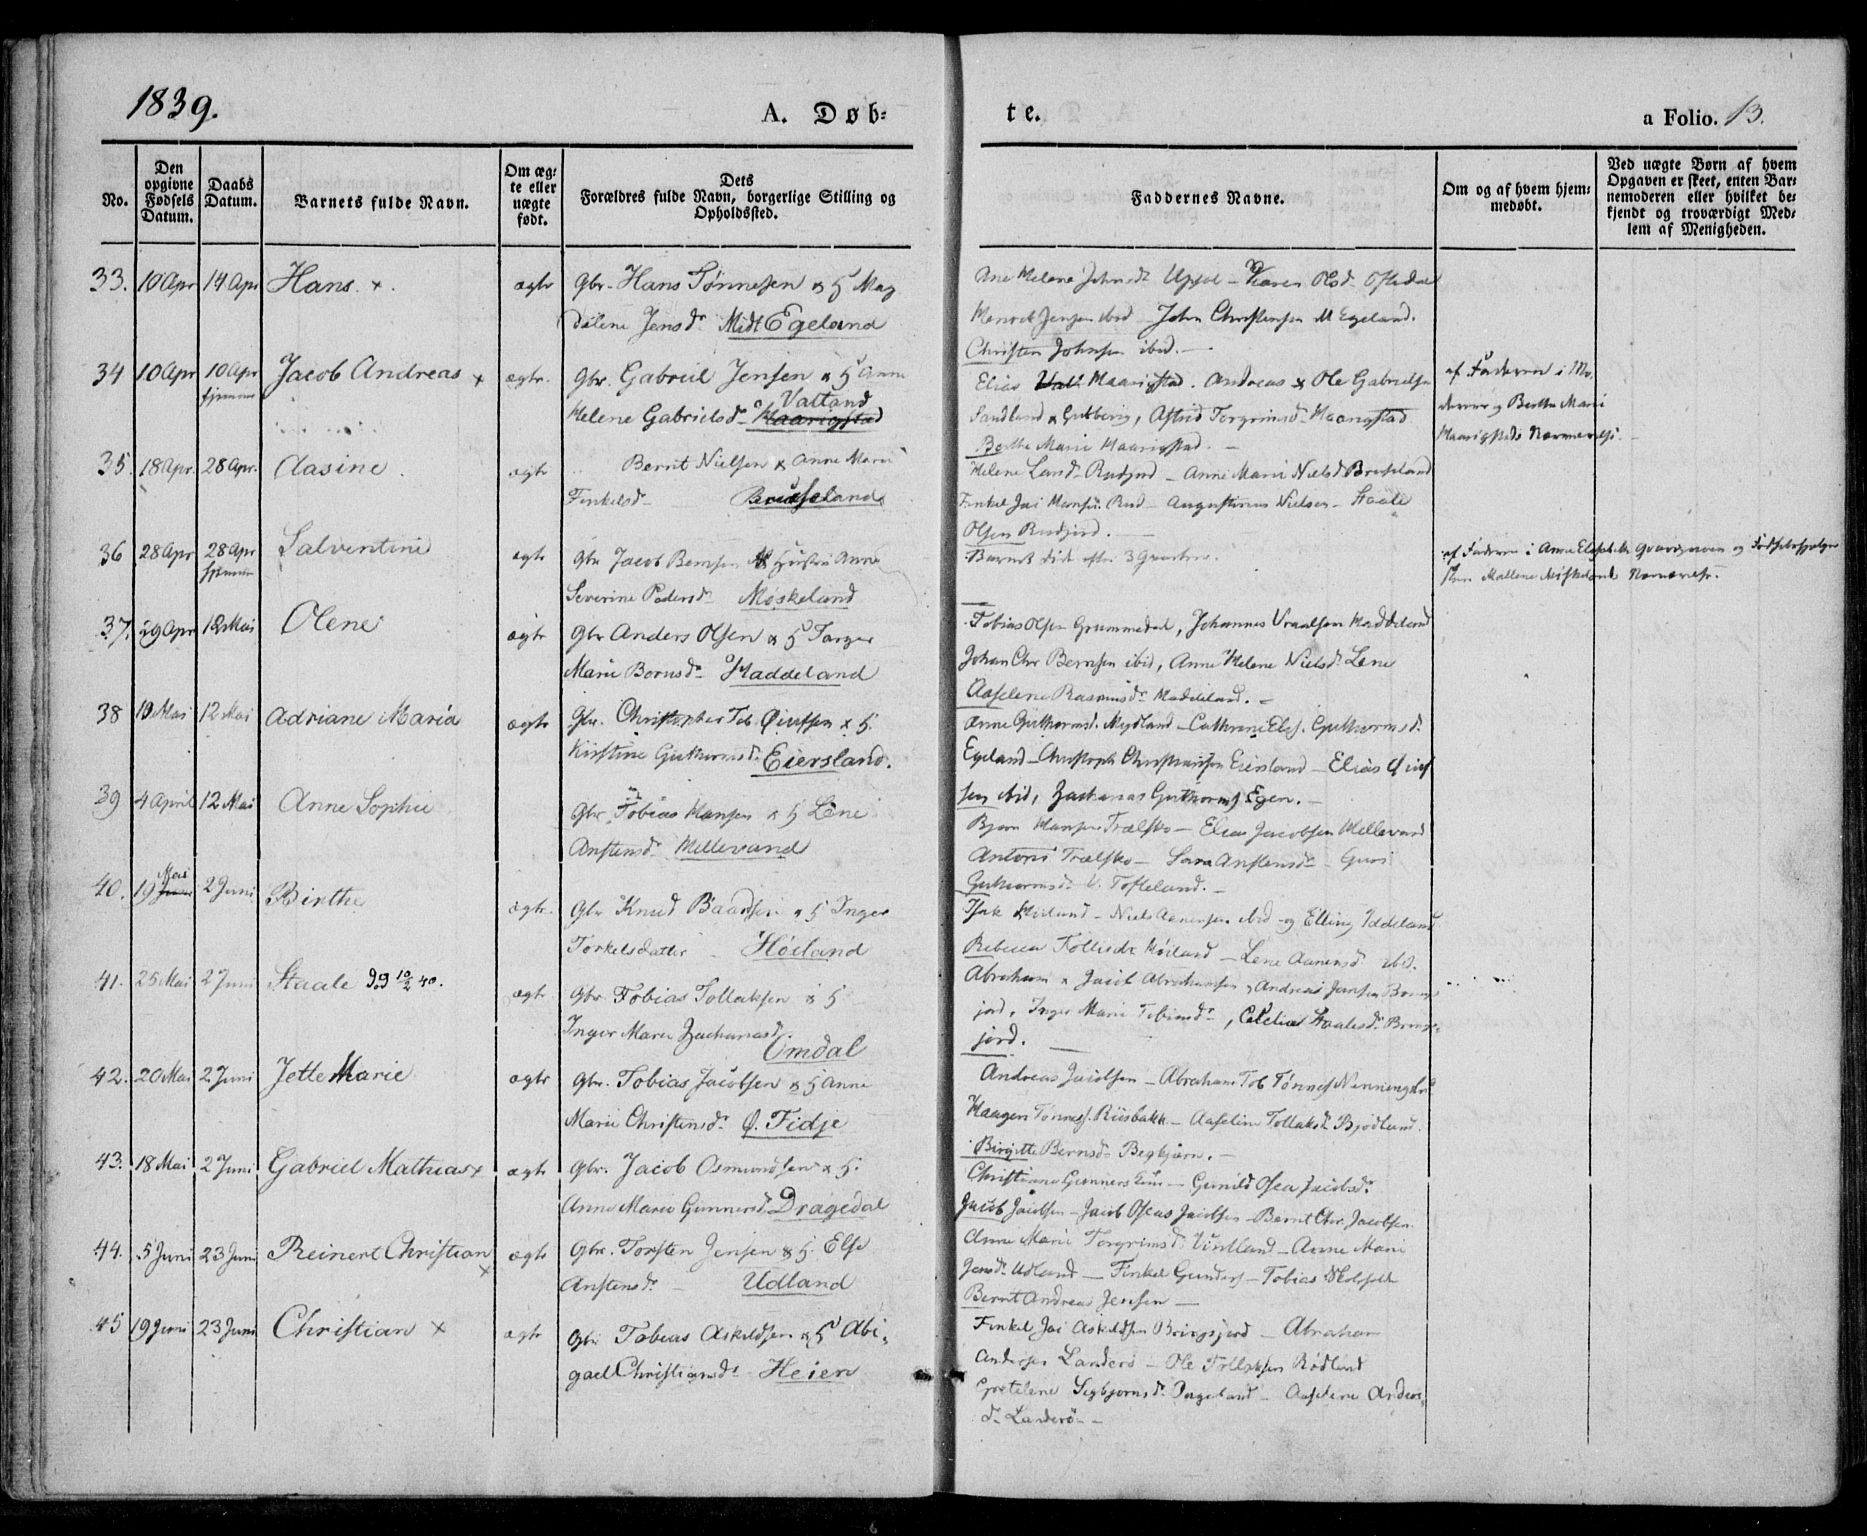 1839.
A. Døb=
te.
a Folio. 13.
No.
Den opgivne Fødsels Datum.
Daabs Datum.
Barnets fulde Navn.
Om æg= te eller uægte født.
Dets Forældres fulde Navn, borgerlige Stilling og Opholdssted.
Faddernes Navne.
Om og af hvem hjem= medøbt.
Ved uægte Børn af hvem Opgaven er skeet, enten Bar= nemoderen eller hvilket be= kjendt og troværdigt Med= lem af Menigheden.
33. 10 Apr 14 Apr Hans. +. ægte Gbr. Hans Tønnesen & H Mag
dalene Jensdr Midt Egeland
Ane Helene Johnsdr - Karen Olsd.
Jensen ibid - John Christensen M Egeland.
Christen Johnsen ibid. -
34 10 Apr 10 Apr hjemme Jacob Andreas + ægte. Gbr. Gabriel Jensen & H Anne
Helene Gabrielsdr Haarigstad Valland
Elias Vall Haarigstad. Andreas & Ole Gabrielsen
Sandland & Gutberg, Astrid Torgrimsdr Haarigstad
Berthe Marie Haarigstad. -
af Faderen i Mo
derens og Berthe Marie
Haarigstads Nærværelse.
35. 18 Apr. 28 Apr. Aasine. ægte Bernt Nielsen & Anne Marie
Finkelsdr Bruseland
Helene Larsdr Rudjord - Anne Marie Nielsd Bruseland
Finkel Jai Rud - Augustinus Nielsen - Staale
Olsen Rudjord.
36 28 Apr 28 Apr hjemme Salventine ægte Gbr Jacob Bernsen & Hustru Anne
Severine Pedersdr Møskeland
Barnet døde efter 3 Qvarter.
af Faderen i Anne Elisabeth og Fødselshjælper
sken Mallene Møskelands Nærværelse.
37. 29 Apr 12 Mai Olene ægte Gbr Anders Olsen & H Torger
Marie Bornsdr Haddeland
Tobias Olsen Grummedal, Johannes Vraalsen Haddeland
Johan Chr Bernsen ibid, Anne Helene Nielsdr Lene
Aaselene Rasmusdr Haddeland. -
38 10 Mai 12 Mai Adriane Maria ægte Gbr. Christopher Tob. Øiufsen & H.
Kirstine Guthormsd. Eiersland.
Anne Guthormsd. Nydland - Cathrine Elis. Guthormsd.
Egeland - Christoph Christiansen Eiersland - Elias Øiuf
sen ibid, Zacharias Guthorms Egen. -
39 4 April 12 Mai Anne Sophie Gbr Tobias Hansen & H Lene
Anstensdr Hellevand
Bjørn Hansen Trælsko - Elias Jacobsen Hellevand
Antoni Trælsko - Sara Anstensdr - Guri
Guthormsdr Tofteland. -
40. 19 Juni Mai 2 Juni Birthe ægte. Gbr Knud Baardsen & H Inger
Torkelsdatter - Høiland
Isak Høiland - Niels Aanensen ibid - og Elling Iddeland
Rebecca Høiland - Lene Aanensd ibid.
41. 25 Mai 2 Juni Staale død 10/2 40. ægte Gbr. Tobias Tollaksen & H
Inger Marie Zachariasd. Omdal
Abraham & Jacob Abrahamsen, Andreas Jensen Brings
jord, Inger Marie Tobiasdr, Cecelia Staalesdr Brings
jord.
42. 20 Mai 2 Juni Jette Marie ægte Gbr. Tobias Jacobsen & H Anne
Marie Christensdr Ø. Fidje
Andreas Jacobsen - Abraham Tob Tønnes
Haagen Tønnes. Riisbakk - Aaseline Tollaksdr Bjødland.
Birgitte Bernsdr Begkjærn. -
43. 18 Mai 2 Juni Gabriel Mathias + ægte Gbr. Jacob Osmundsen & H.
Anne Marie Gunnersd. Dragedal
Christiane Gunners - Gunild Osea Jacobsdr
Jacob Jacobsen - Jacob Oseas Jacobsen - Bernt Chr. Jacobsen
44. 5 Juni 23 Juni Reinert Christian + ægte Gbr. Torsten Jensen & H. Else
Anstensdr - Udland
Anne Marie Torgrimsdr - Anne Marie
Jensdr Udland - Finkel Gunders - Tobias
Bernt Andreas Jensen -
45 19 Juni 23 Juni Christian + ægte Gbr Tobias Askildsen & H Abi=
gael Christiansdr Heien
Finkel Jai Askildsen Bringsjord - Abraham
Andersen Landerø - Ole Tollaksen Rødland
Gretelene Segbjørnsdr - Aaselene Anders
dr Landerø -